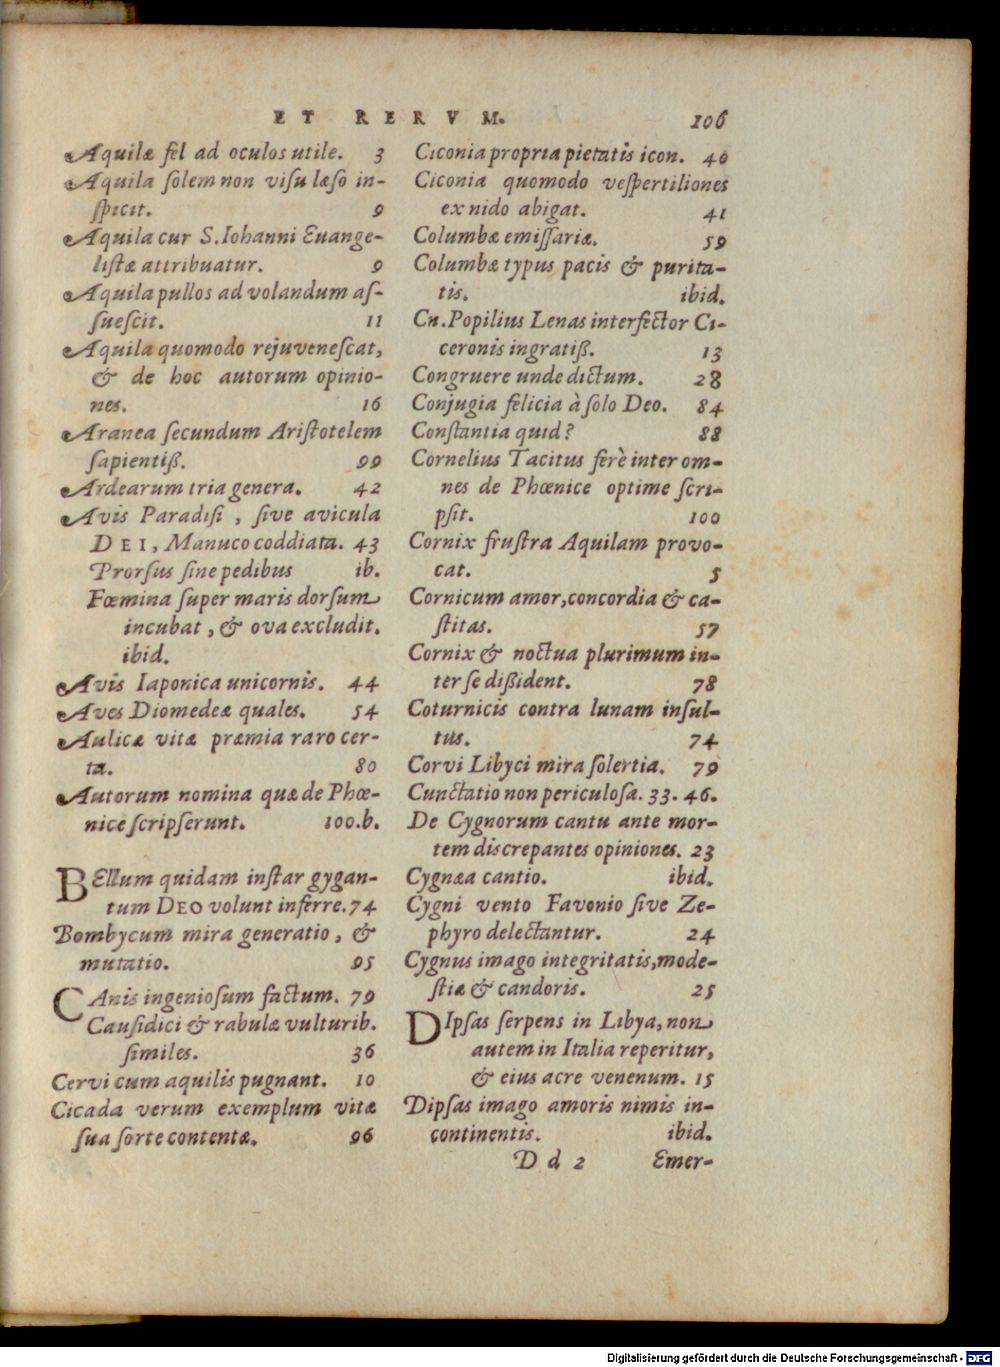 ET RERVM. 106
Aquilæ fel ad oculos utile. 3
Aquila ſolem non viſu læſo in-
ſpicit. 9
Aquila cur S. Iohanni Euange-
liſtæ attribuatur. 9
Aquila pullos ad volandum aſ-
ſueſcit. 11
Aquila quomodo rejuveneſcat,
& de hoc autorum opinio-
nes. 16
Aranea ſecundum Ariſtotelem
ſapientiß. 99
Ardearum tria genera. 42
Avis Paradiſi, ſive avicula
DEI, Manuco coddiata. 43
Prorſus ſine pedibus ib.
Fœmina ſuper maris dorſum
incubat, & ova excludit.
ibid.
Avis Iaponica unicornis. 44
Aves Diomedeæ quales. 54
Aulicæ vitæ præmia raro cer-
ta. 80
Autorum nomina quæ de Phœ-
nice ſcripſerunt. 100.b.
BEllum quidam inſtar gygan-
tum DEO volunt inferre. 74
Bombycum mira generatio, &
mutatio. 95
CAnis ingenioſum factum. 79
Cauſidici & rabulæ vulturib.
ſimiles. 36
Cervi cum aquilis pugnant. 10
Cicada verum exemplum vitæ
ſua ſorte contentæ. 96
Ciconia propria pietatis icon. 40
Ciconia quomodo veſpertiliones
ex nido abigat. 41
Columbæ emiſſariæ. 59
Columbæ typus pacis & purita-
tis. ibid.
Cn. Popilius Lenas interfector Ci-
ceronis ingratiß. 13
Congruere unde dictum. 28
Conjugia felicia à ſolo Deo. 84
Conſtantia quid? 88
Cornelius Tacitus ferè inter om-
nes de Phœnice optime ſcri-
pſit. 100
Cornix fruſtra Aquilam provo-
cat. 5
Cornicum amor, concordia & ca-
ſtitas. 57
Cornix & noctua plurimum in-
ter ſe dißident. 78
Coturnicis contra lunam inſul-
tus. 74
Corvi Libyci mira ſolertia. 79
Cunctatio non periculoſa. 33. 46.
De Cygnorum cantu ante mor-
tem diſcrepantes opiniones. 23
Cygnæa cantio. ibid.
Cygni vento Favonio ſive Ze-
phyro delectantur. 24
Cygnus imago integritatis, mode-
ſtiæ & candoris. 25
DIpſas ſerpens in Libya, non
autem in Italia reperitur,
& eius acre venenum. 15
Dipſas imago amoris nimis in-
continentis. ibid.
D d 2 Emer-
Digitalisierung gefördert durch die Deutsche Forschungsgemeinschaft - DFG